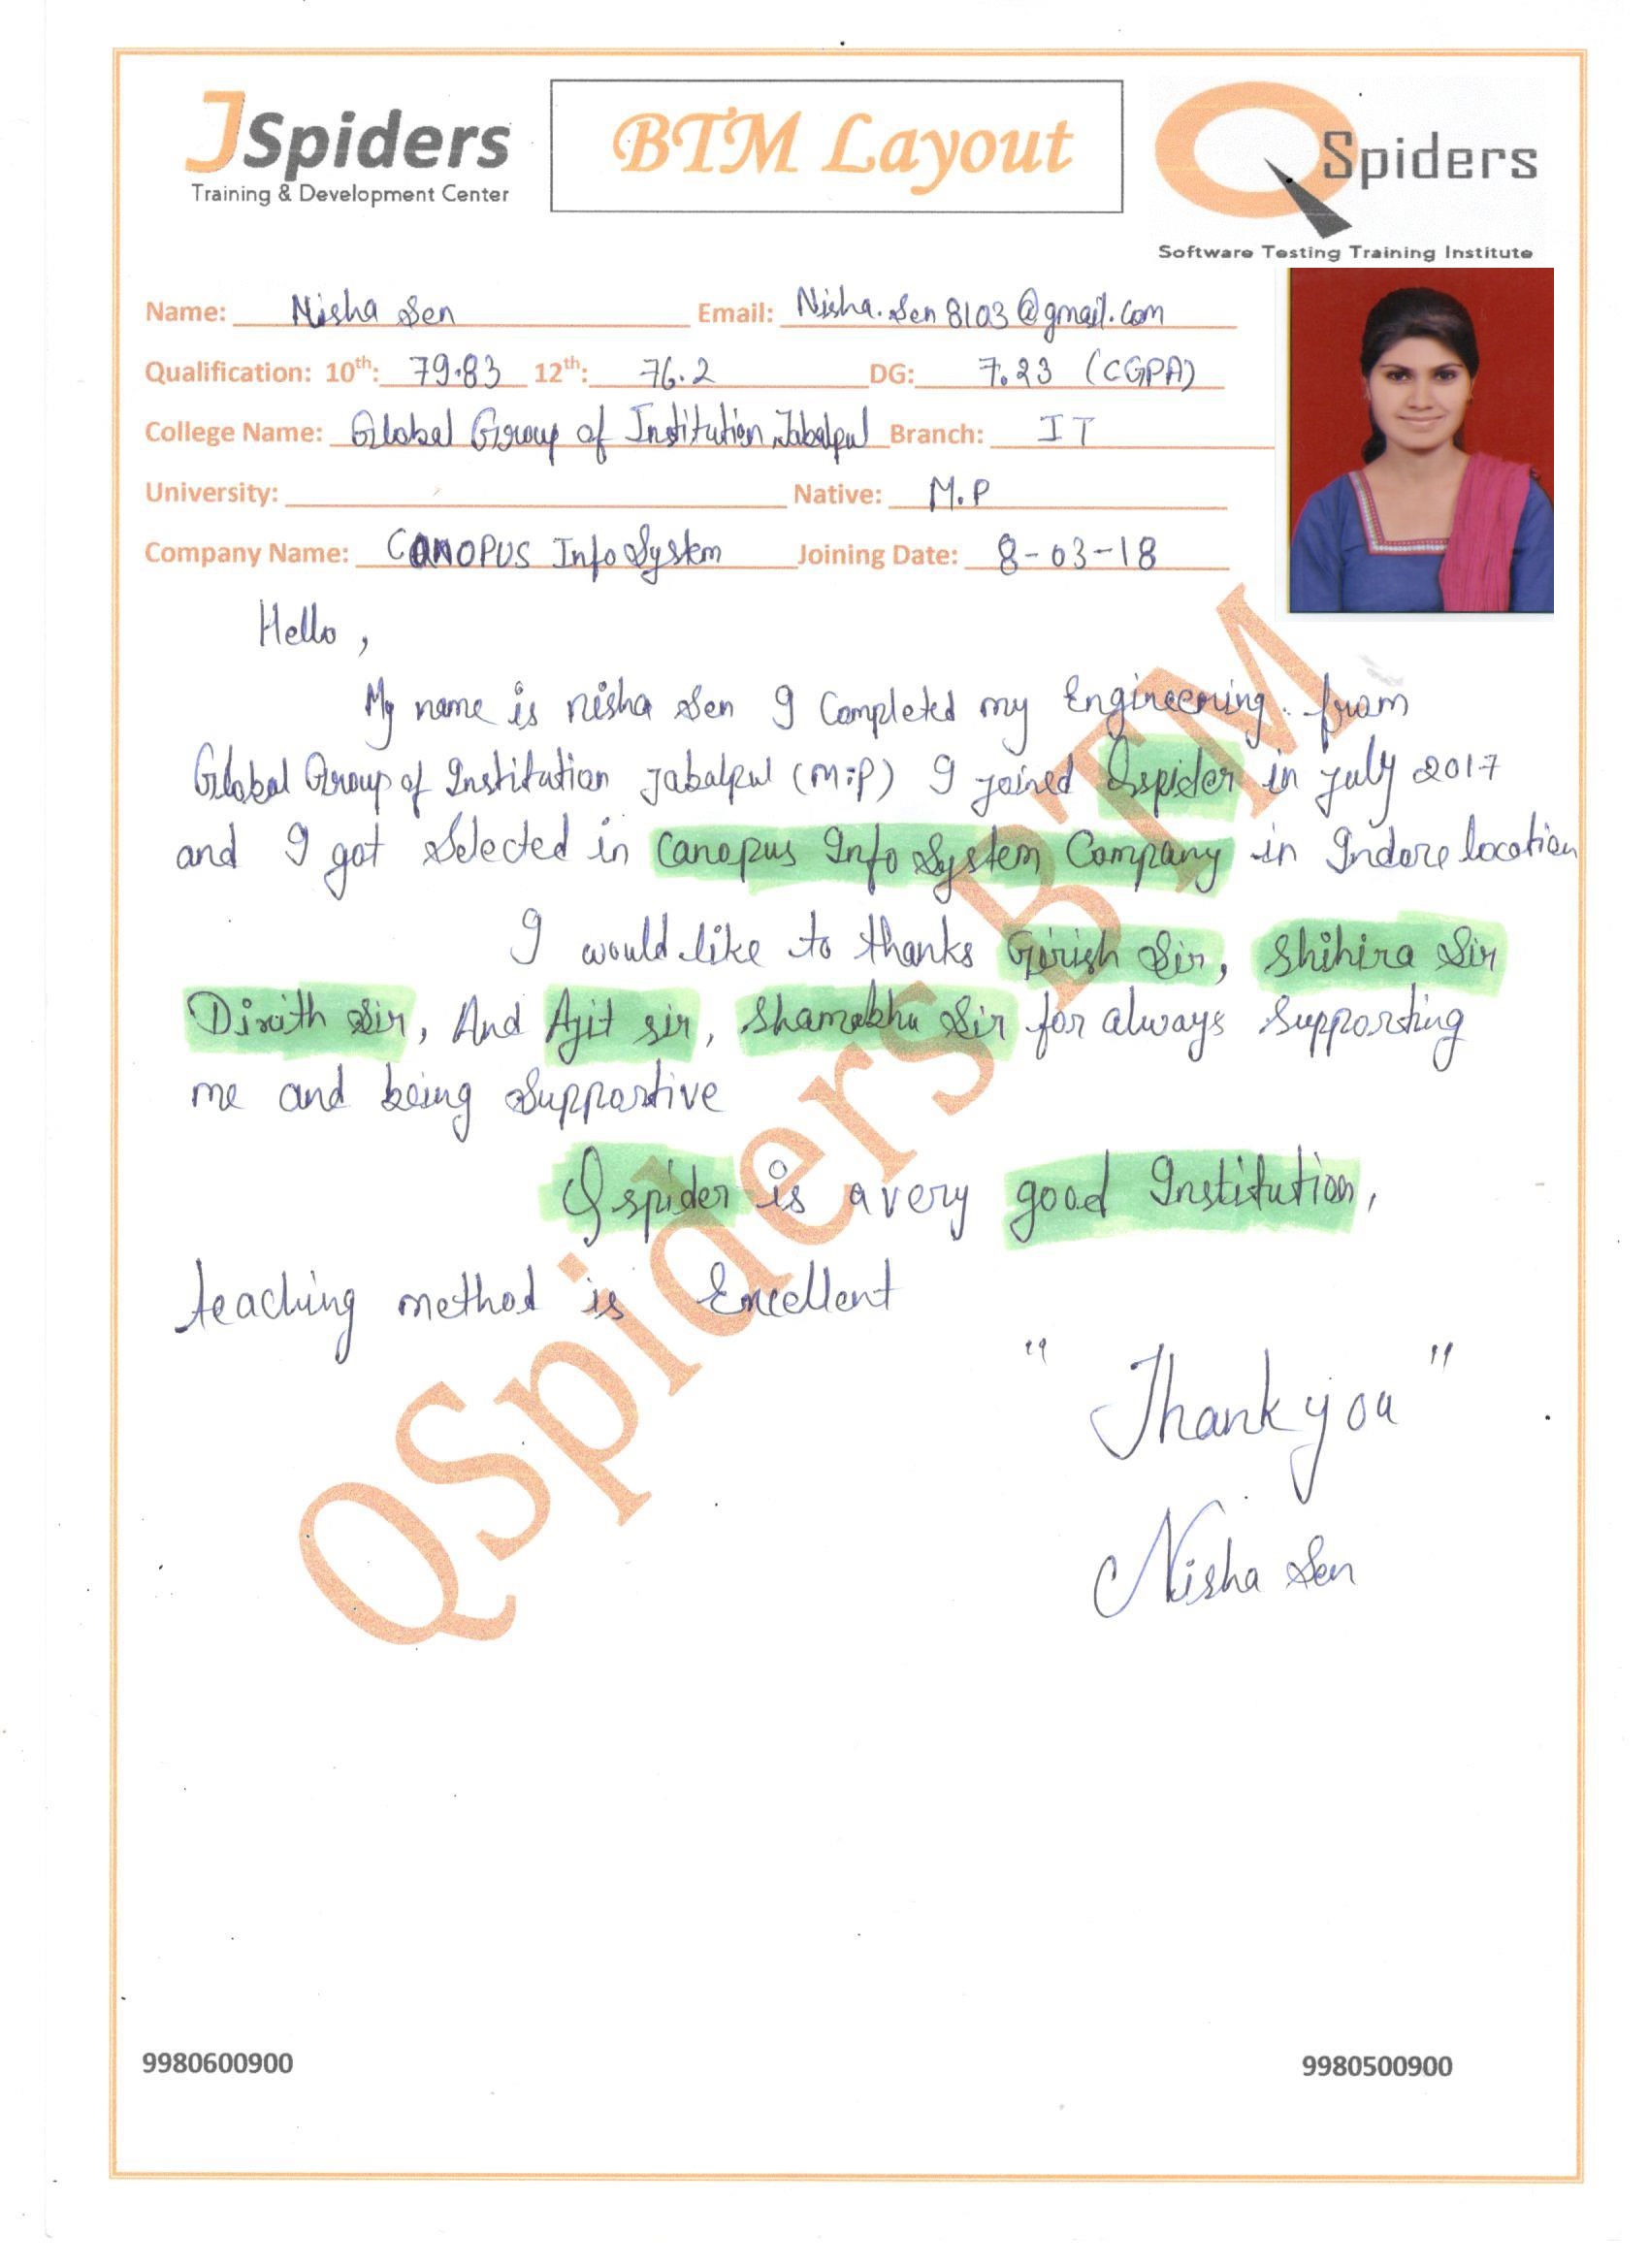 JSpiders
Training & Development Center
BTM Layout
QSpiders
Software Testing Training Institute
Name: Nisha Sen Email: Nisha.Sen8103@gmail.com
Qualification: 10th: 79.83 12th: 76.2 DG: 7.23 (CGPA)
College Name: Global Group of Institution Jabalpul Branch: IT
University: Native: M.P
Company Name: CANOPUS Info System Joining Date: 8-03-18
Hello,
My name is nisha Sen I Completed my Engineering. from
Global Group of Institution Jabalpul (M.P) I joined Qspider in july 2017
and I got Selected in Canopus Info System Company in Indore location
I would like to thanks Girish Sir, Shihira Sir
Dixith Sir, And Ajit sir, Shamabhu Sir for always Supporting
me and being Supportive
Qspider is a very good Institution,
teaching method is Excellent
" Thank you "
Nisha Sen
QSpiders BTM
9980600900
9980500900